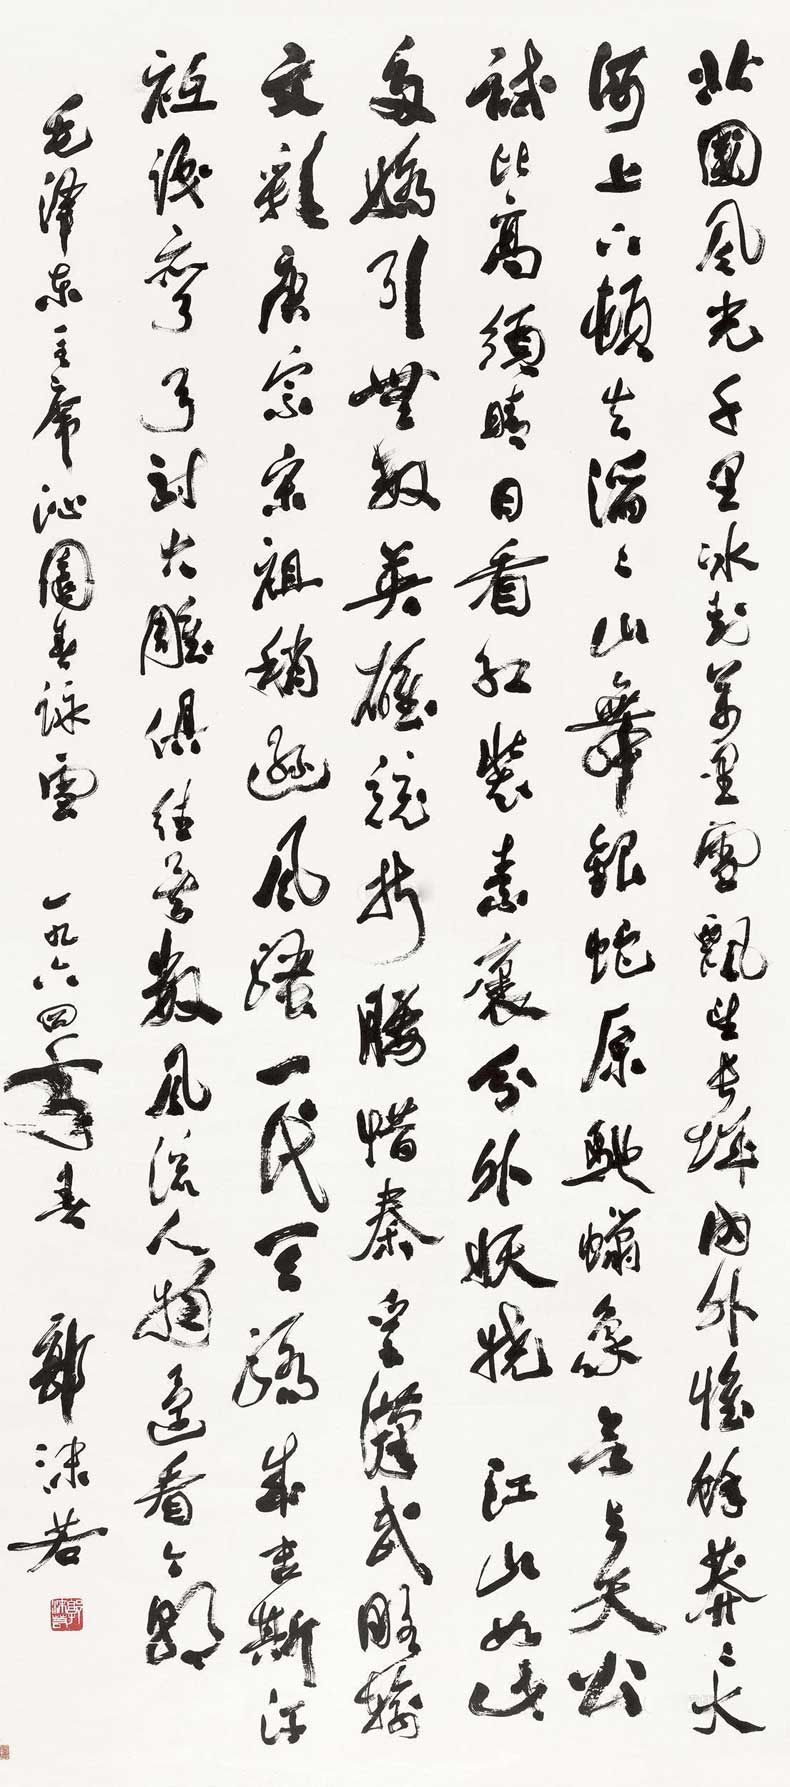 北國風光千里冰封萬里雪飄望長城內外惟餘莽〻大
河上下頓失滔〻山舞銀蛇原馳蠟象欲与天公
試比高須晴日看紅裝素裹分外妖嬈 江山如此
多嬌引無數英雄競折腰惜秦皇漢武略輸
文彩唐宗宋祖稍遜風騷一代天驕成吉斯汗
祇識彎弓射大雕俱往矣數風流人物還看今朝
毛澤東主席沁園春詠雪 一九六四年春 郭沫若
郭沫若